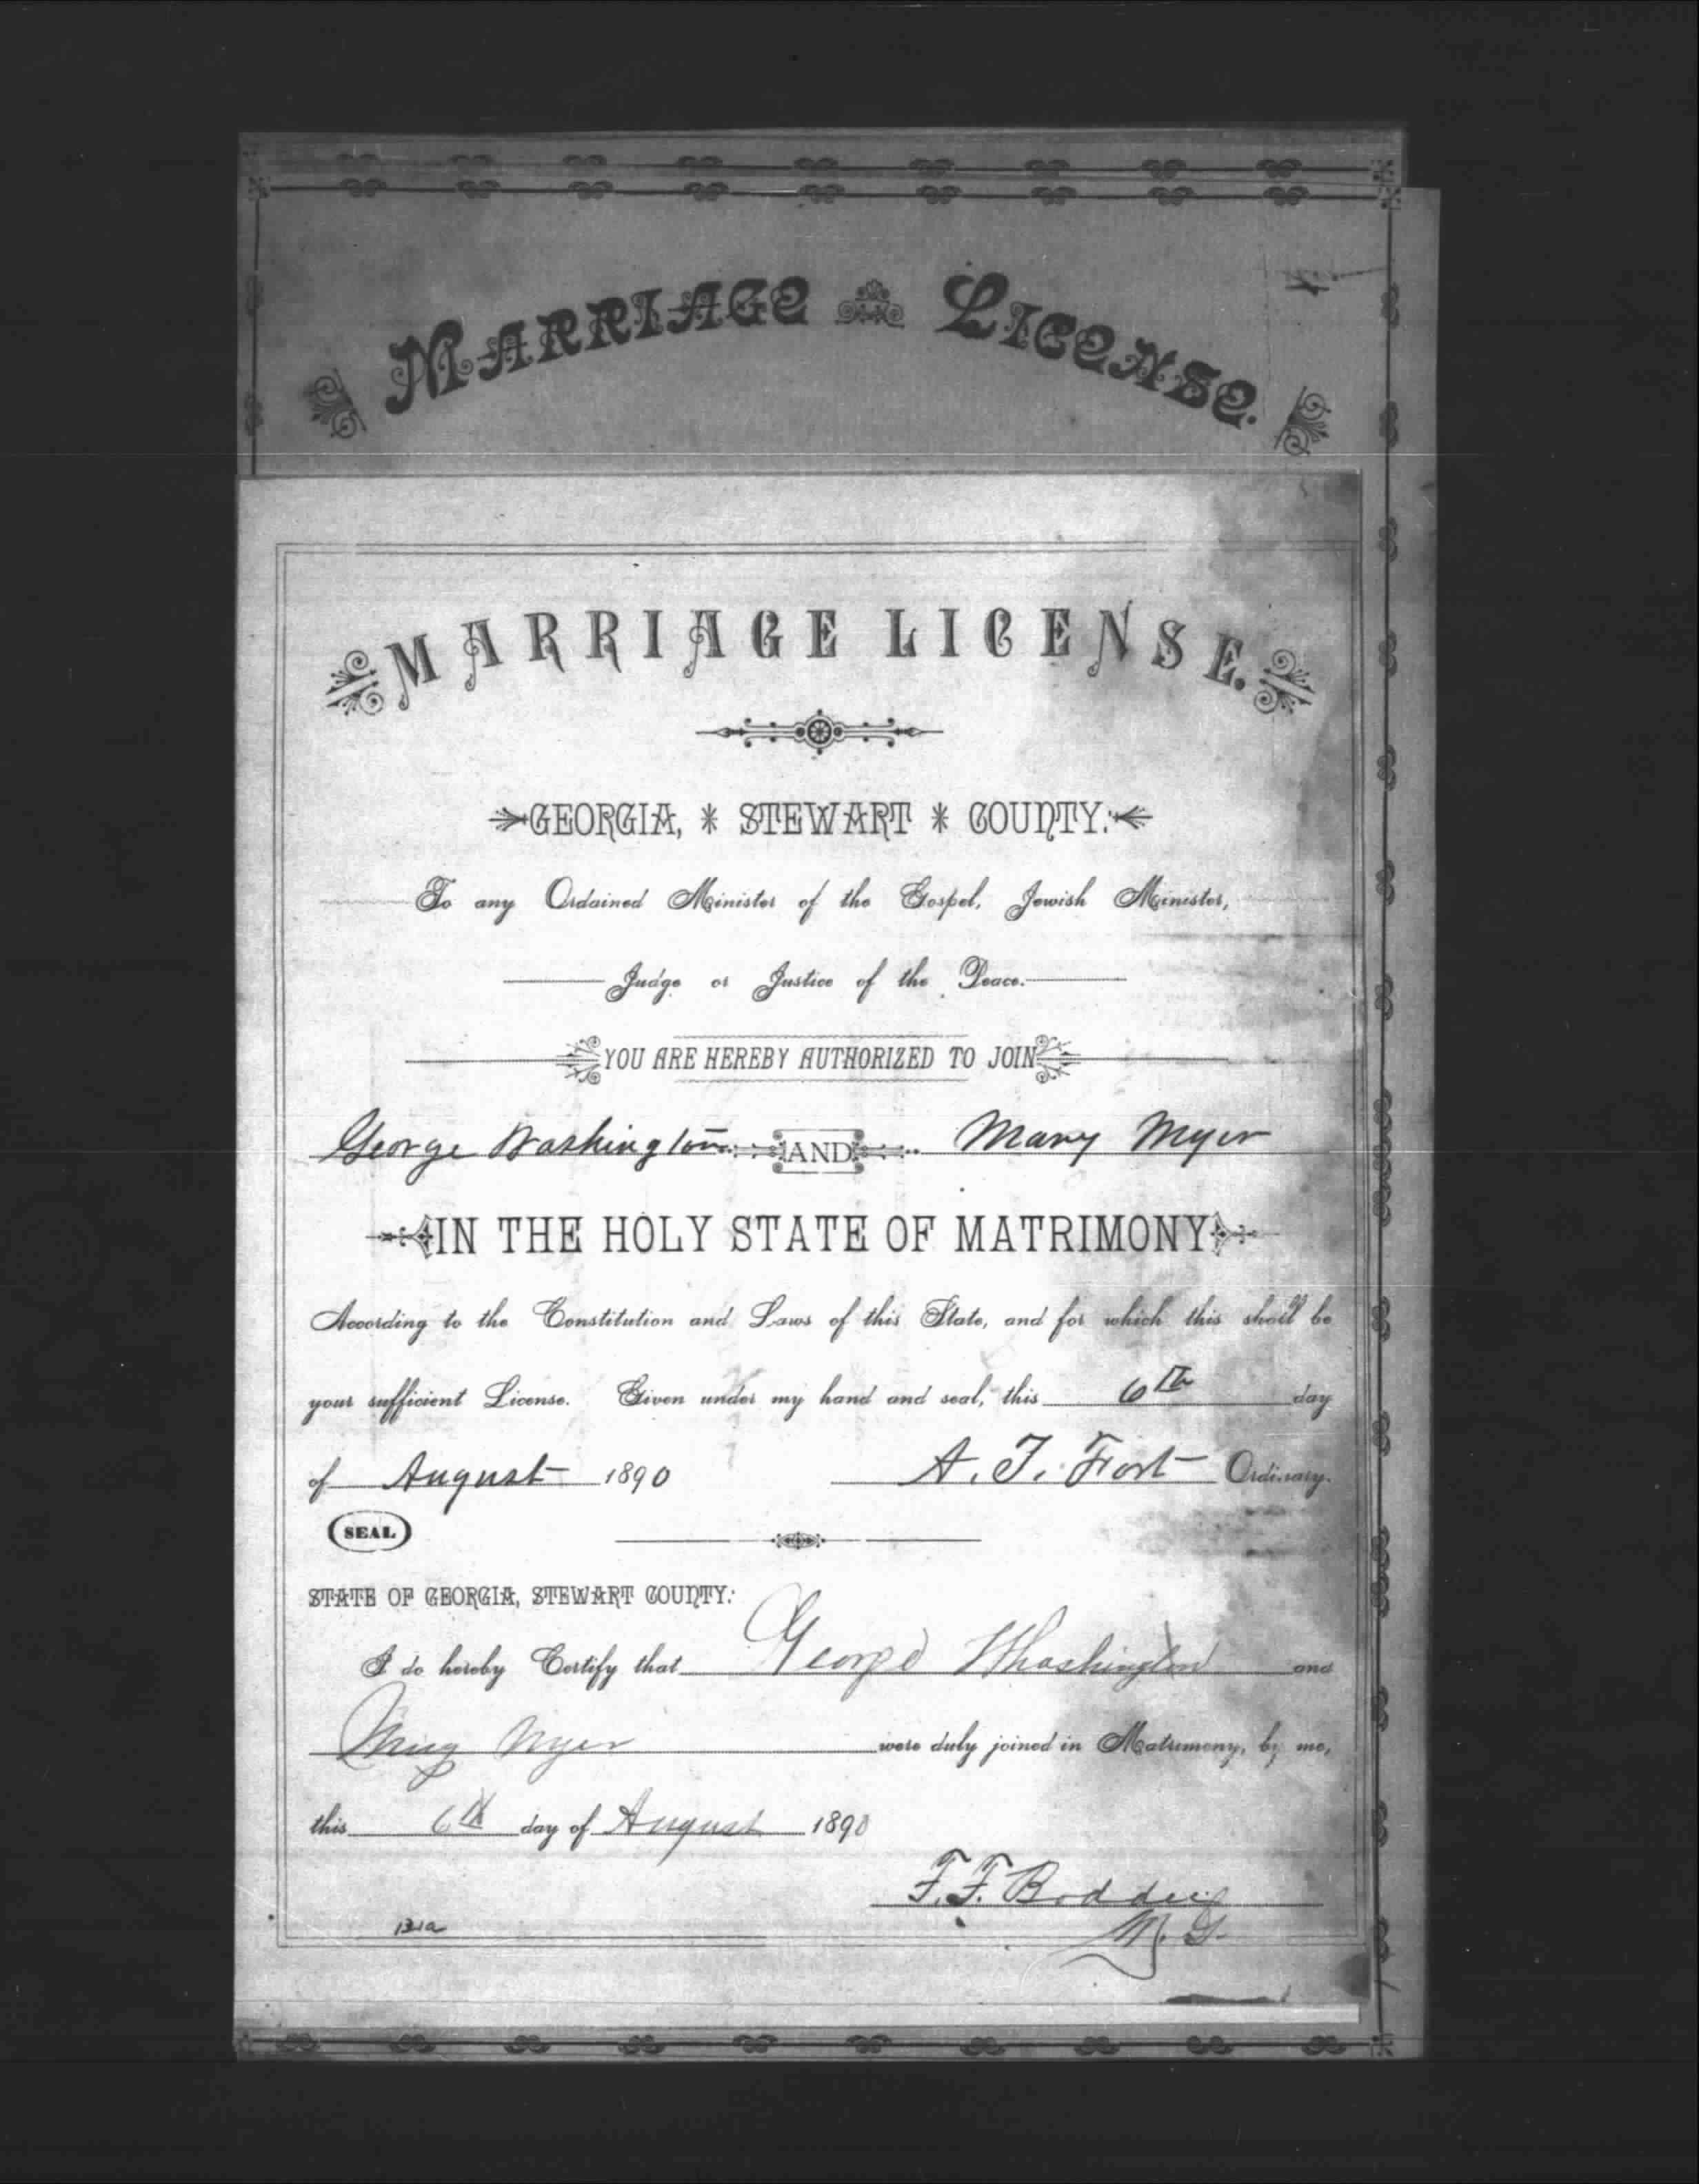 MARRIAGE LICENSE.
MARRIAGE LICENSE.
GEORGIA, * STEWART * COUNTY:
To any Ordained Minister of the Gospel, Jewish Minister,
Judge or Justice of the Peace.
YOU ARE HEREBY AUTHORIZED TO JOIN
George Washington AND Mary Myer
IN THE HOLY STATE OF MATRIMONY
According to the Constitution and Laws of this State, and for which this shall be
your sufficient License. Given under my hand and seal, this 6th day
of August 1890 A. T. Fort Ordinary.
SEAL
STATE OF GEORGIA, STEWART COUNTY:
I do hereby Certify that George Whashington and
Myer were duly joined in Matrimony, by me,
this 6th day of August 1890
F. F. Boddie
M. G.